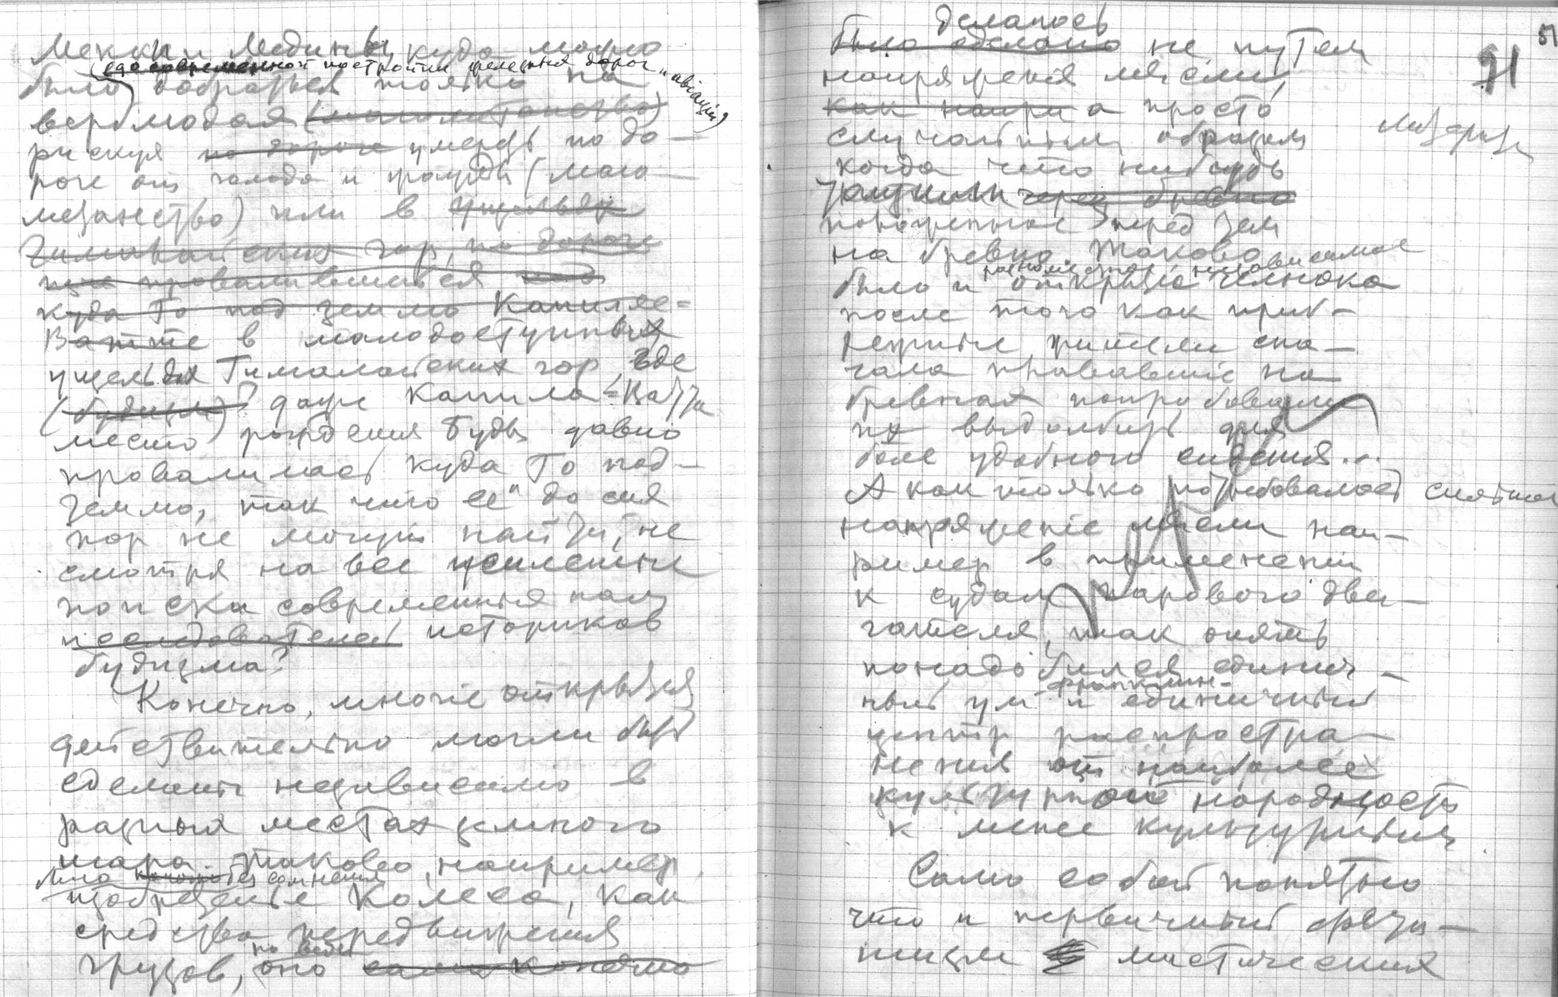 Мекки и Медины, куда можно
(до современной постройки железных дорог и авіаціи)
было добраться только на
верблюдах (магометанство)
рискуя по дороге умереть по до-
роге от голода и жажды (мага-
метанство) или в ущельях
Гималайских гор, по дороге
провалившейся под
куда то под землю Капиле=
Ватте в малодоступных
ущельях Гималайских гор, где
(будизм)? даже Капила=Ватта
(место) рождения Будды давно
провалилась куда то под-
землю, так что ее до сих
пор не могут найти, не
смотря на все усиленные
поиски современных нам
последователей историков
будизма?
Конечно, многіе открытія
действительно могли быть
сделаны независимо в
разных местах земного
шара. Таково, например,
было без сомнения
изобретенье колеса, как
средства передвижения
грузов, но ведь
оно само конечно
91
делалось
было сделано не путем
напряжения мысли,
как напри а просто
случайным образом
когда что нибудь
тащили через бревно
положенное перед тем
на бревно. Таково
независимое
было и открытіе челнока
после того как приб-
режные жители сна-
чала плававшіе на
бревнах попробовали
их выдолбить для
боле удобного сидения...
А как только потребовалось сильное
напряженіе мысли нап-
ример в применении
к судам парового дви-
гателя, так опять
понадобился единич-
ный ум и единичный
центр распростра-
нения от наиболее
культурной народность
к менее культурным
Само собой понятно
что и первичный
мистическия